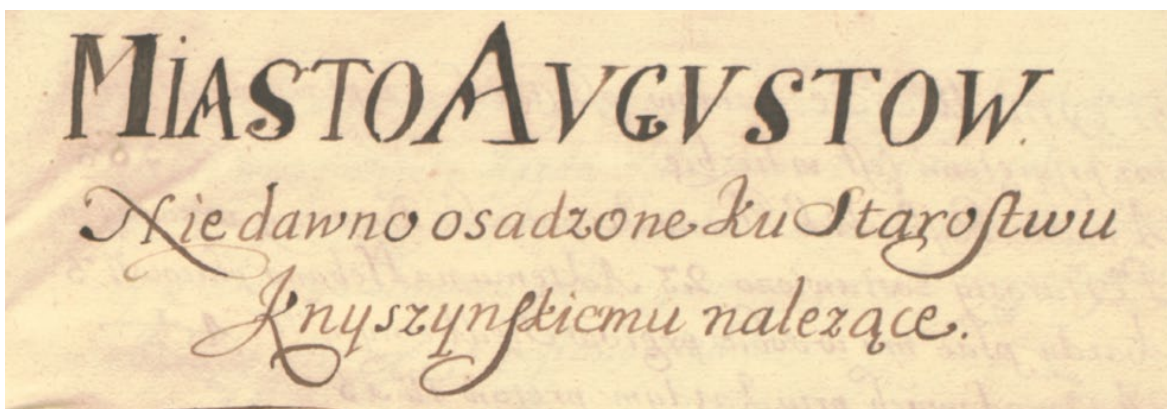 MIASTO AVGVSTOW.
Nie dawno osadzone ku Starostwu
Knyszynskiemu nalezące.